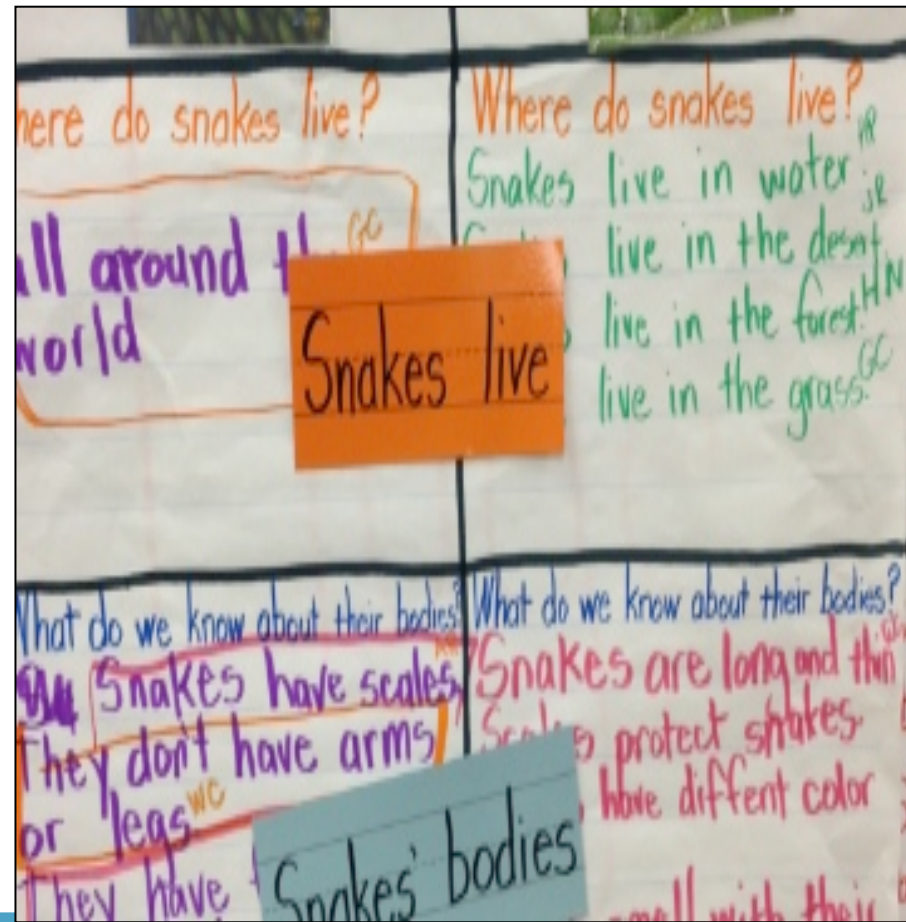 here do snakes live?
all around th GC
world
Where do snakes live?
Snakes live in water.
live in the desert. JR
live in the forest. HN
live in the grass. GC
Snakes live
What do we know about their bodies?
Snakes have scales
They don't have arms
or legs WC
They have
What do we know about their bodies?
Snakes are long and thin
Scales protect snakes.
have diffent color
small with their
Snakes' bodies